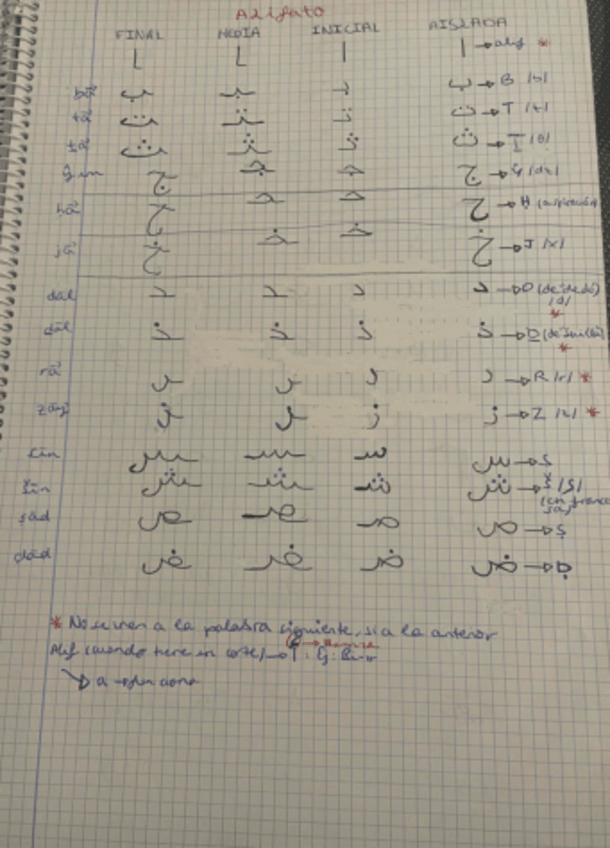 Alifato
FINAL MEDIA INICIAL AISLADA
ـا ـا ا ا → alif *
bā ـب ـبـ بـ ب → B /b/
tā ـت ـتـ تـ ت → T /t/
ṯā ـث ـثـ ثـ ث → T /θ/
ǧīm ـج ـجـ جـ ج → Ǧ
ḥā ـح ـحـ حـ ح → Ḥ (aspiración)
jā ـخ ـخـ خـ خ → J /x/
dāl ـد ـد د د → D (de dedo) /d/ *
ḏāl ـذ ـذ ذ ذ → D *
rā ـر ـر ر ر → R /r/ *
zāy ـز ـز ز ز → Z /z/ *
sīn ـس ـسـ سـ س → S
šīn ـش ـشـ شـ ش → Š /ʃ/ (en francés
ṣād ـص ـصـ صـ ص → Ṣ
ḍād ـض ـضـ ضـ ض → Ḍ
* No se unen a la palabra siguiente, si a la anterior
Alif cuando tiene un
→ a